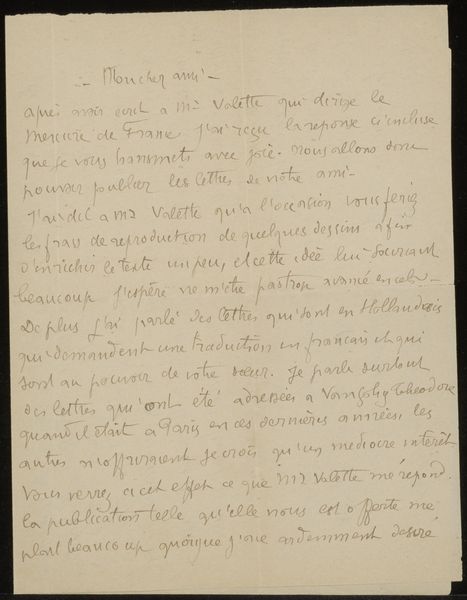 - Mon cher ami -
après avoir écrit à Mr Valette qui dirige le
Mercure de France j'ai reçu la réponse ci incluse
que je vous transmets avec joie. Nous allons donc
pouvoir publier les lettres de notre ami -
J'ai dit a Mr Valette qu'a l'occasion vous feriez
les frais de reproduction de quelques dessins afin
d'enrichir le texte un peu, et cette idée lui souriant
beaucoup j'espère ne m'être pas trop avancé en cela -
De plus j'ai parlé des lettres qui sont en Hollandais
qui demandent une traduction en français et qui
sont au pouvoir de votre sœur. Je parle surtout
des lettres qui ont été adressées a Van Gogh Théodore
quand il était a Paris en ces dernières années, les
autres n'offriraient je crois qu'un médiocre intérêt
Vous verrez a cet effet ce que Mr Valette me répond.
la publication telle qu'elle nous est offerte me
plait beaucoup quoique j'eue ardemment désiré